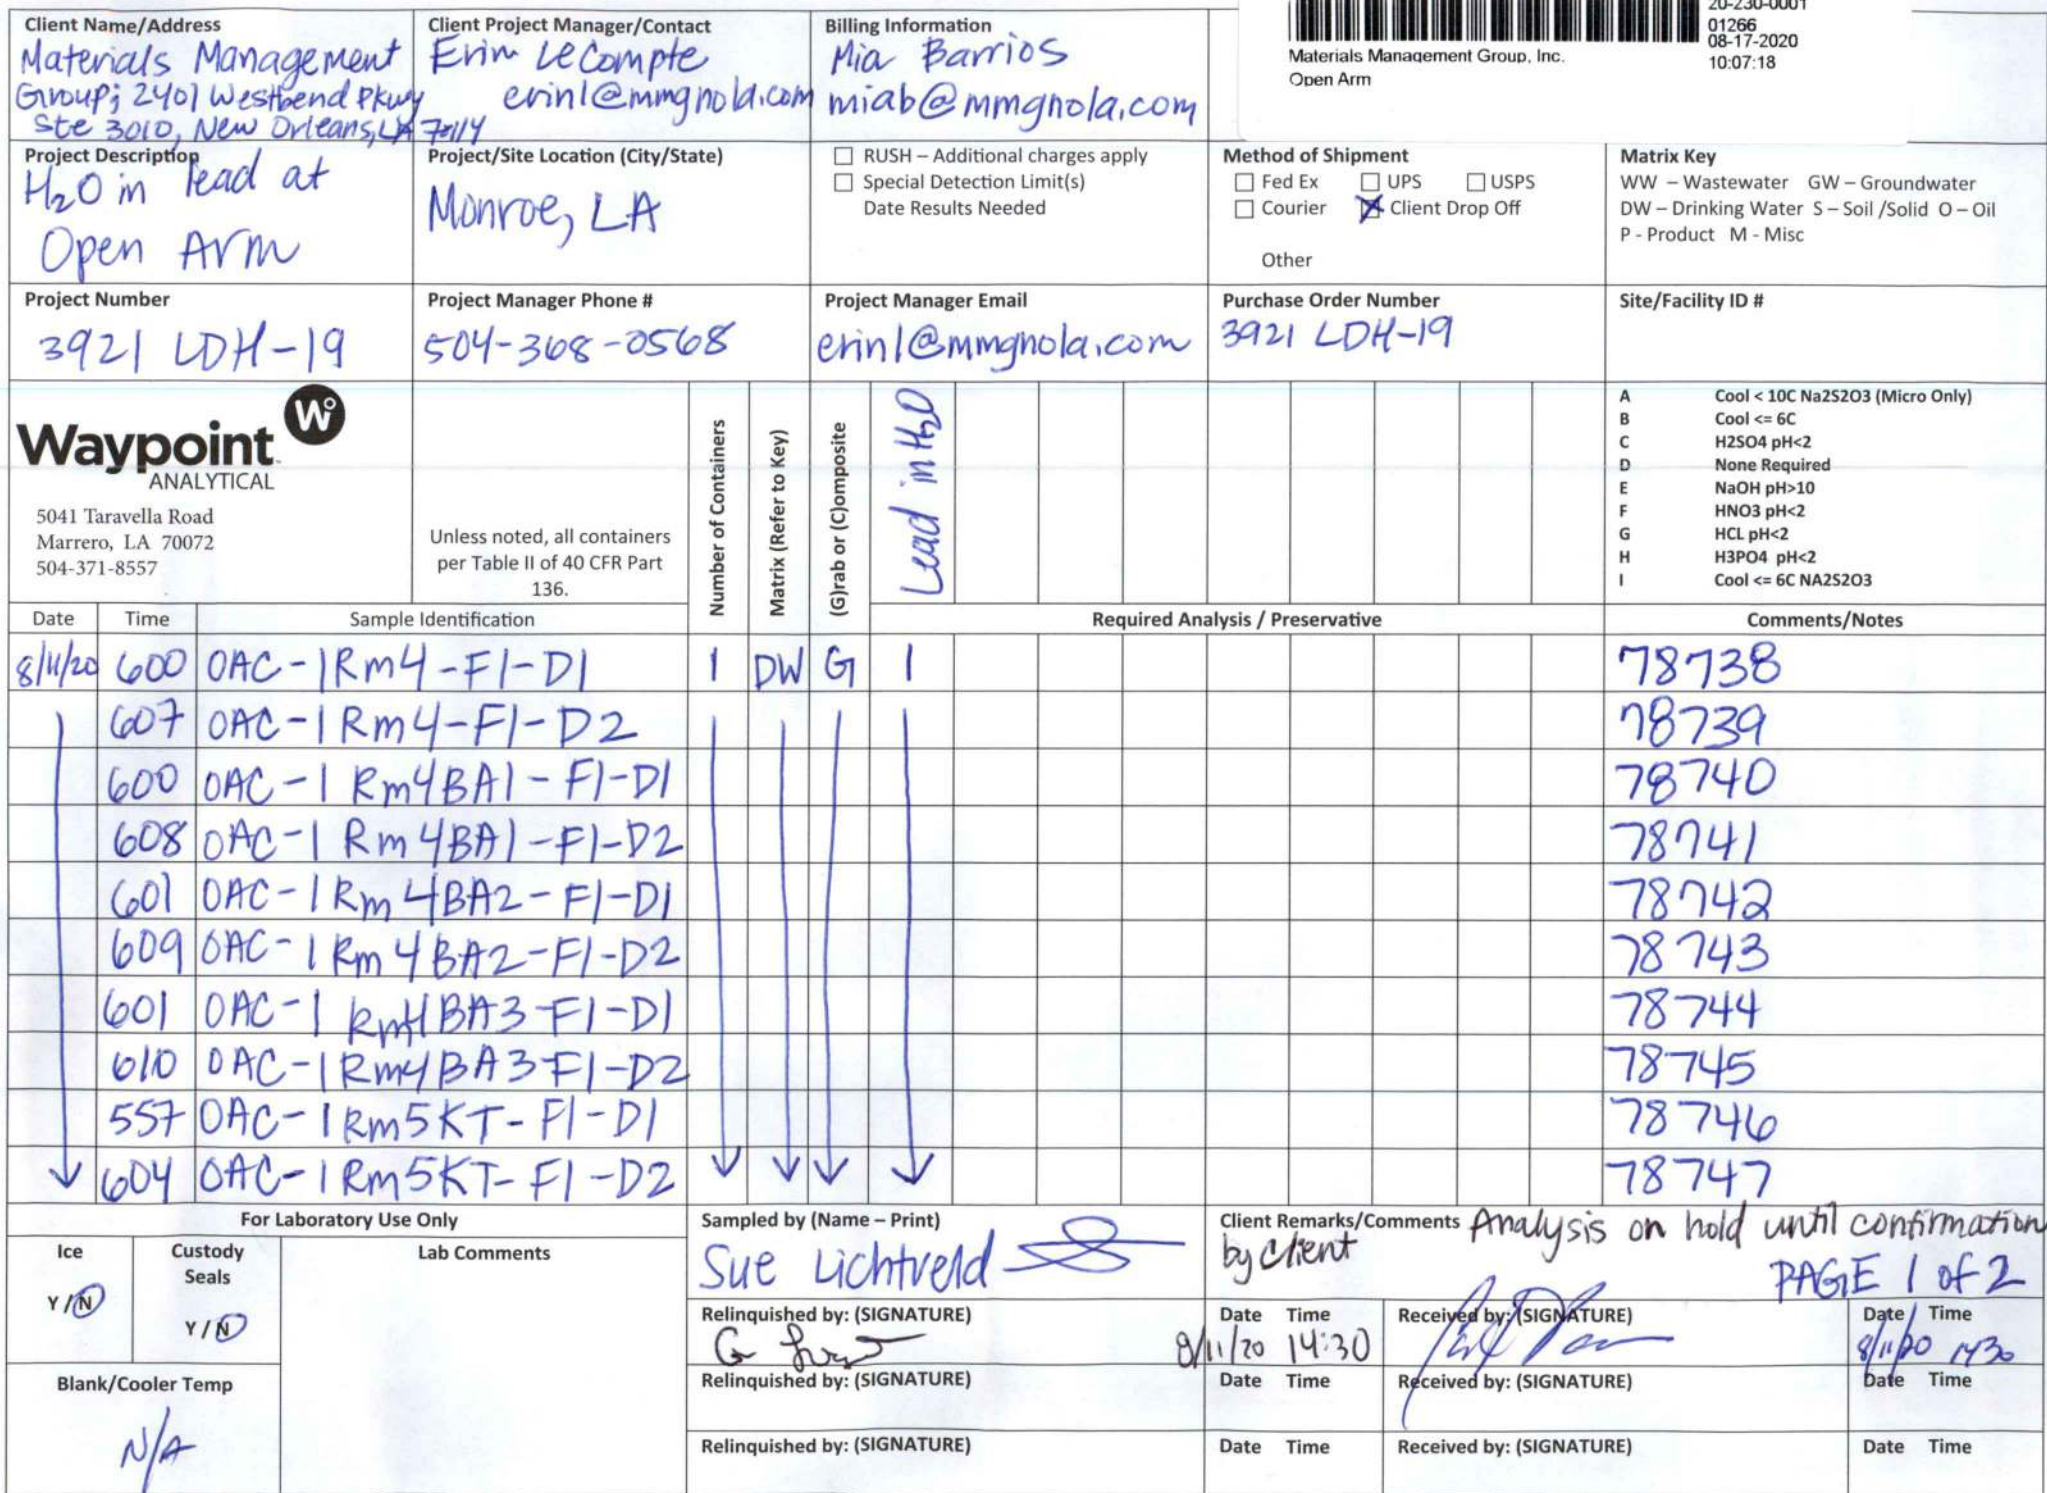 20-230-0001
01266
08-17-2020
10:07:18
Materials Management Group, Inc.
Open Arm
Client Name/Address
Materials Management
Group; 2401 Westbend Pkwy
Ste 3010, New Orleans, LA 70114
Client Project Manager/Contact
Erin LeCompte
erinl@mmgnola.com
Billing Information
Mia Barrios
miab@mmgnola.com
Project Description
H2O in lead at
Open Arm
Project/Site Location (City/State)
Monroe, LA
RUSH – Additional charges apply
Special Detection Limit(s)
Date Results Needed
Method of Shipment
Fed Ex UPS USPS
Courier Client Drop Off
Other
Matrix Key
WW – Wastewater GW – Groundwater
DW – Drinking Water S – Soil /Solid O – Oil
P - Product M - Misc
Project Number
3921 LDH-19
Project Manager Phone #
504-368-0568
Project Manager Email
erinl@mmgnola.com
Purchase Order Number
3921 LDH-19
Site/Facility ID #
Waypoint W
ANALYTICAL
5041 Taravella Road
Marrero, LA 70072
504-371-8557
Unless noted, all containers
per Table II of 40 CFR Part
136.
Number of Containers
Matrix (Refer to Key)
(G)rab or (C)omposite
Lead in H2O
A Cool < 10C Na2S2O3 (Micro Only)
B Cool <= 6C
C H2SO4 pH<2
D None Required
E NaOH pH>10
F HNO3 pH<2
G HCL pH<2
H H3PO4 pH<2
I Cool <= 6C NA2S2O3
Date Time Sample Identification Required Analysis / Preservative Comments/Notes
8/11/20 600 OAC-1Rm4-F1-D1 1 DW G 1 78738
607 OAC-1Rm4-F1-D2 78739
600 OAC-1Rm4BA1-F1-D1 78740
608 OAC-1Rm4BA1-F1-D2 78741
601 OAC-1Rm4BA2-F1-D1 78742
609 OAC-1Rm4BA2-F1-D2 78743
601 OAC-1Rm4BA3-F1-D1 78744
610 OAC-1Rm4BA3-F1-D2 78745
557 OAC-1Rm5KT-F1-D1 78746
604 OAC-1Rm5KT-F1-D2 78747
For Laboratory Use Only
Ice
Y / N
Custody
Seals
Y / N
Lab Comments
Blank/Cooler Temp
N/A
Sampled by (Name – Print)
Sue Lichtveld
Client Remarks/Comments Analysis on hold until confirmation
by client
PAGE 1 of 2
Relinquished by: (SIGNATURE) Date Time Received by: (SIGNATURE) Date Time
8/11/20 14:30 8/11/20 1430
Relinquished by: (SIGNATURE) Date Time Received by: (SIGNATURE) Date Time
Relinquished by: (SIGNATURE) Date Time Received by: (SIGNATURE) Date Time